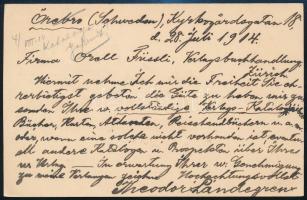 Örebro (Schweden), Kyrkogårdsgatan 18
d. 28 Juli 1914.
Firma Orell Füssli, Verlagsbuchhandlung
Zürich
Hiermit nehme ich mir die Freiheit Sie
gebeten die Güte zu haben mir zu
senden Ihren vollständige Verlags-Katalog
Bücher, Karten, Reisehandbücher u.a.
oder, wenn eine solche nicht vorhanden ist
all andere Kataloge u. Prospekten über Ihrer
Verlag. — In Erwartung Ihrer w. Genehmigung
zu meine Verlangen zeichne Hochachtungsvollst
Theodor Landegren